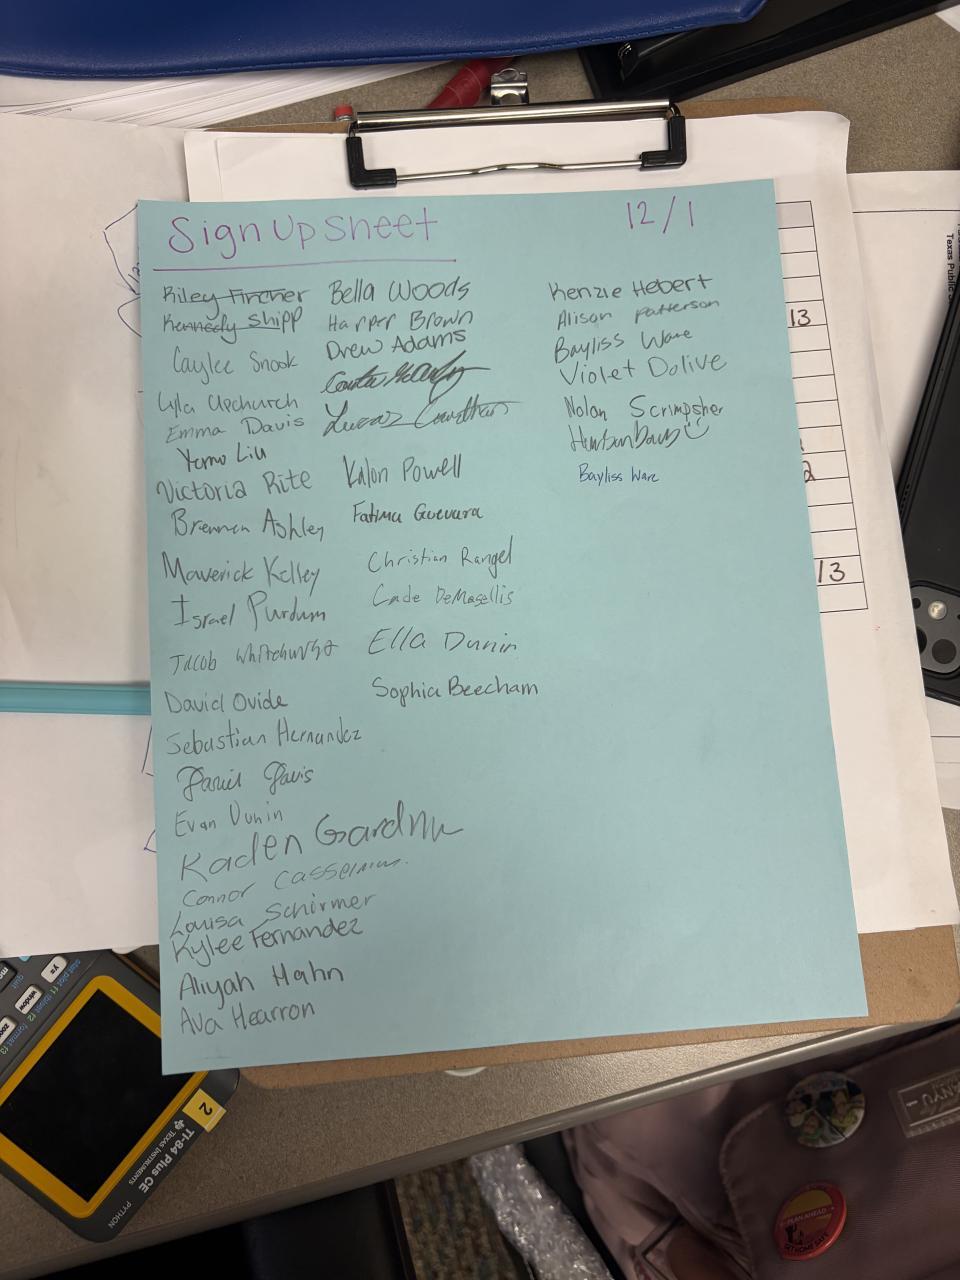 Sign Up Sheet
12/1
Riley Fincher
Kennedy Shipp
Caylee Snook
Lyla Upchurch
Emma Davis
Yomo Liu
Victoria Rite
Brennen Ashley
Maverick Kelley
Israel Purdum
Jacob Whitehurst
David Ovide
Sebastian Hernandez
Daniel Davis
Evan Dunin
Kaden
Connor
Louisa Schirmer
Kylee Fernandez
Aliyah Hahn
Ava Hearron
Bella Woods
Harper Brown
Drew Adams
Lucas
Kalon Powell
Fatima Guevara
Christian Rangel
Cade DeMasellis
Ella Dunin
Sophia Beecham
Kenzie Hebert
Alison Patterson
Bayliss Ware
Violet Dolive
Nolan Scrimpsher
Bayliss Ware
13
2
/3
Texas Public
y=
window
zoom
stat plot f1
tblset f2
format f3
quit
2
TI-84 Plus CE
TEXAS INSTRUMENTS
PYTHON
PLAN AHEAD
GET HOME SAFE